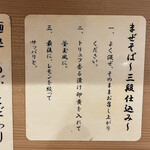 まぜそば〜三段仕込み〜
一、よく混ぜ、そのままお召し上がり
ください。
二、トリュフ香る漬け卵黄を入れて
釜玉風に。
三、最後に、レモンを絞って
サッパリと。